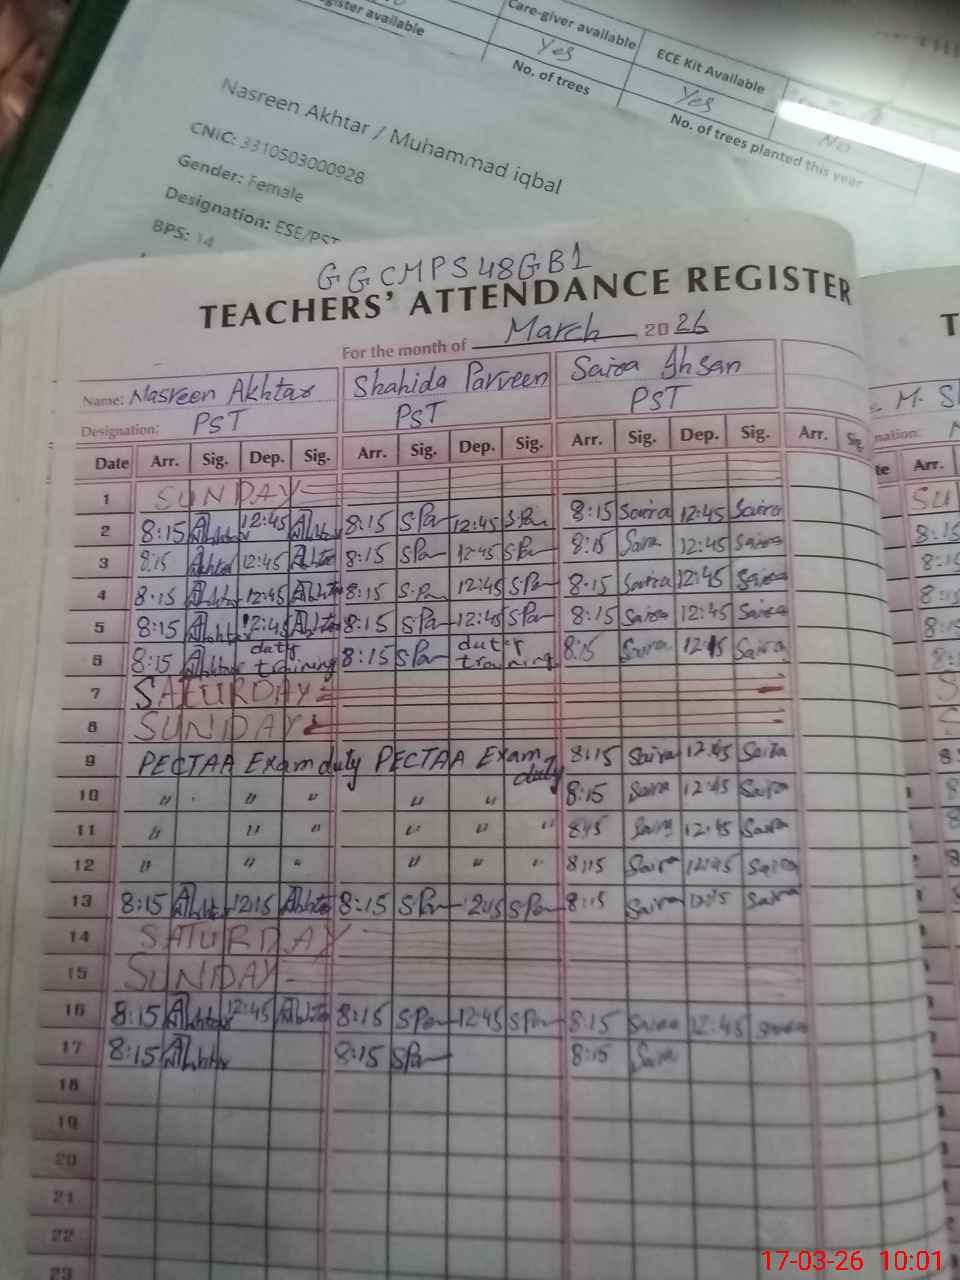 Register available
Care-giver available
ECE Kit Available
Yes
Yes
No
No. of trees
No. of trees planted this year
Nasreen Akhtar / Muhammad iqbal
CNIC: 3310503000928
Gender: Female
Designation: ESE/PST
BPS: 14
GGCMPS 48GB1
TEACHERS' ATTENDANCE REGISTER
For the month of March 2026
Name: Nasreen Akhtar Shahida Parveen Saira Ahsan
Designation: PST PST PST
Date Arr. Sig. Dep. Sig. Arr. Sig. Dep. Sig. Arr. Sig. Dep. Sig. Arr. Sig.
1 SUNDAY
2 8:15 Akhtar 12:45 Akhtar 8:15 S.Par 12:45 S.Par 8:15 Saira 12:45 Saira
3 8:15 Akhtar 12:45 Akhtar 8:15 S.Par 12:45 S.Par 8:15 Saira 12:45 Saira
4 8:15 Akhtar 12:45 Akhtar 8:15 S.Par 12:45 S.Par 8:15 Saira 12:45 Saira
5 8:15 Akhtar 12:45 Akhtar 8:15 S.Par 12:45 S.Par 8:15 Saira 12:45 Saira
6 8:15 Akhtar duty training 8:15 S.Par duty training 8:15 Saira Saira
7 SATURDAY
8 SUNDAY
9 PECTAA Exam duty PECTAA Exam duty 8:15 Saira 12:45 Saira
10 " " " " " 8:15 Saira 12:45 Saira
11 " " " " " " 8:15 Saira 12:45 Saira
12 " " " " " " 8:15 Saira 12:45 Saira
13 8:15 Akhtar 12:15 Akhtar 8:15 S.Par 12:15 S.Par 8:15 Saira 12:15 Saira
14 SATURDAY
15 SUNDAY
16 8:15 Akhtar 12:45 Akhtar 8:15 S.Par 12:45 S.Par 8:15 Saira 12:45 Saira
17 8:15 Akhtar 8:15 S.Par 8:15 Saira
18
19
20
21
22
23
17-03-26 10:01